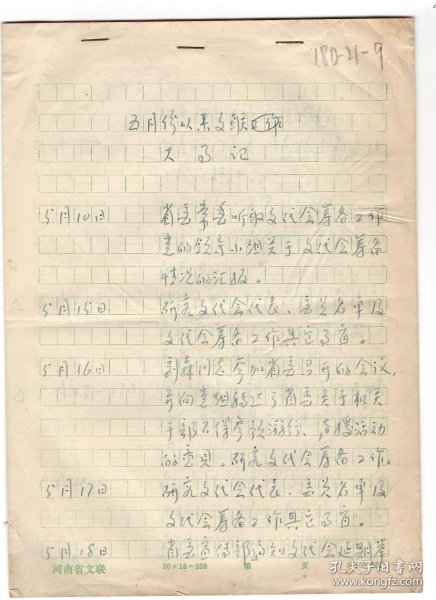 180-21-9
五月份以来文联工作
大事记
5月10日 省委常委听取文代会筹备工作
党的领导小组关于文代会筹备
情况的汇报。
5月15日 研究文代会代表、委员名单及
文代会筹备工作具体事宜。
5月16日 到森同志参加省委召开的会议,
并向党组转达了省委关于机关
干部不得参预游行、声援活动
的意见。研究文代会筹备工作。
5月17日 研究文代会代表、委员名单及
文代会筹备工作具体事宜。
5月18日 省委宣传部通知文代会延期举
河南省文联 20×16=320 第 页
孔夫子旧书网
www.kongfz.com